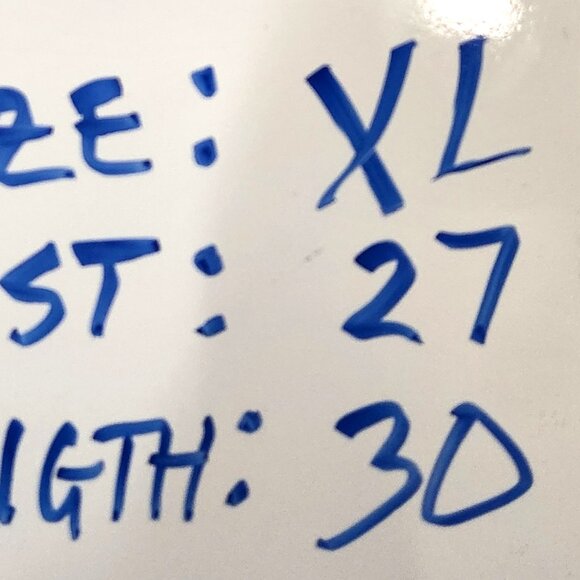 ZE: XL
ST: 27
NGTH: 30